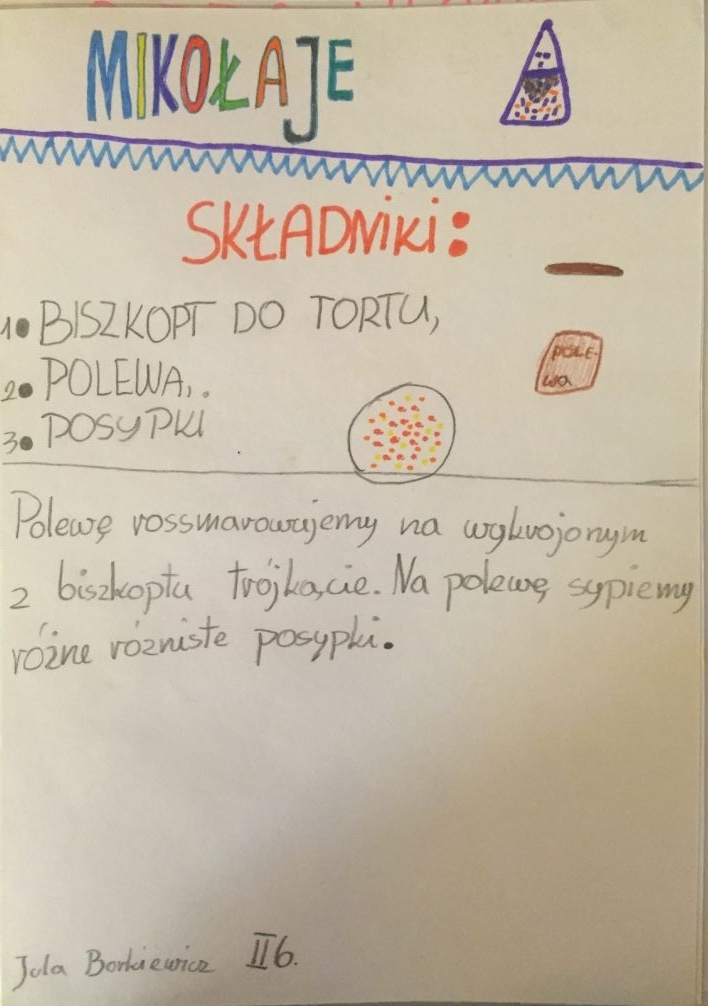 MIKOŁAJE
SKŁADNiKi:
1. BISZKOPT DO TORTU,
2. POLEWA,.
POLE-
wa
3. POSYPKI
Polewę rossmarowujemy na wykrojonym
z biszkoptu trójkącie. Na polewę sypiemy
różne rózniste posypki.
Jula Borkiewicz II b.